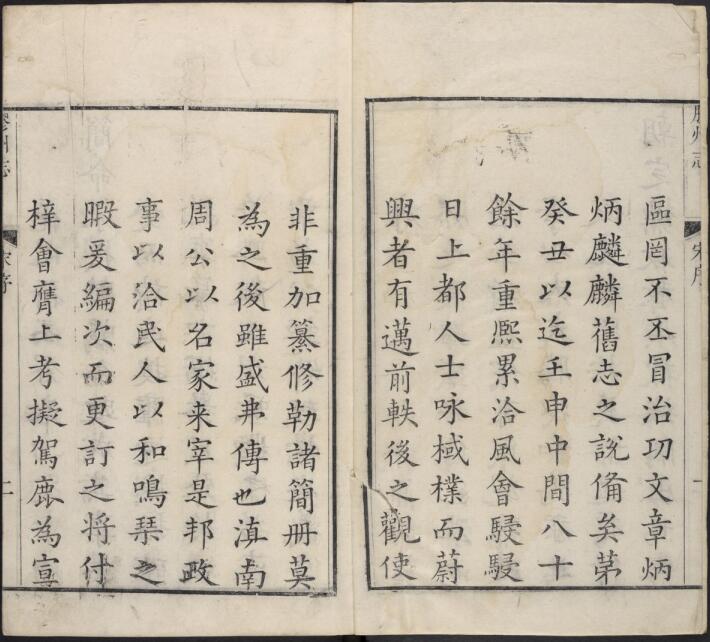 膠州志
宋序
一
區罔不丕冒治功文章炳
炳麟麟舊志之說備矣苐
癸丑以迄壬申中間八十
餘年重熈累洽風會駸駸
日上都人士咏棫樸而蔚
興者有邁前軼後之觀使
非重加纂修勒諸簡册莫
為之後雖盛弗傳也滇南
周公以名家来宰是邦政
事以洽民人以和鳴琴之
暇爰編次而更訂之将付
梓會膺上考擬駕鹿為宣
膠州志
宋序
二